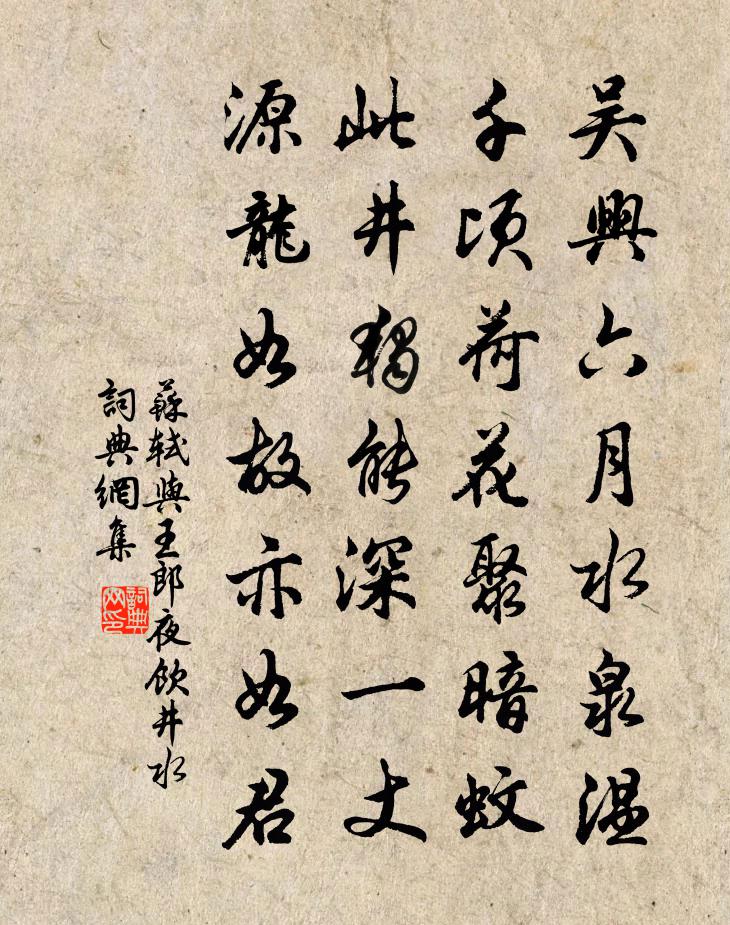 吴興六月水泉温
千頃荷花聚暗蚊
此井獨能深一丈
源龍如故亦如君
蘇軾與王郎夜飲井水
詞典網集
詞典网印